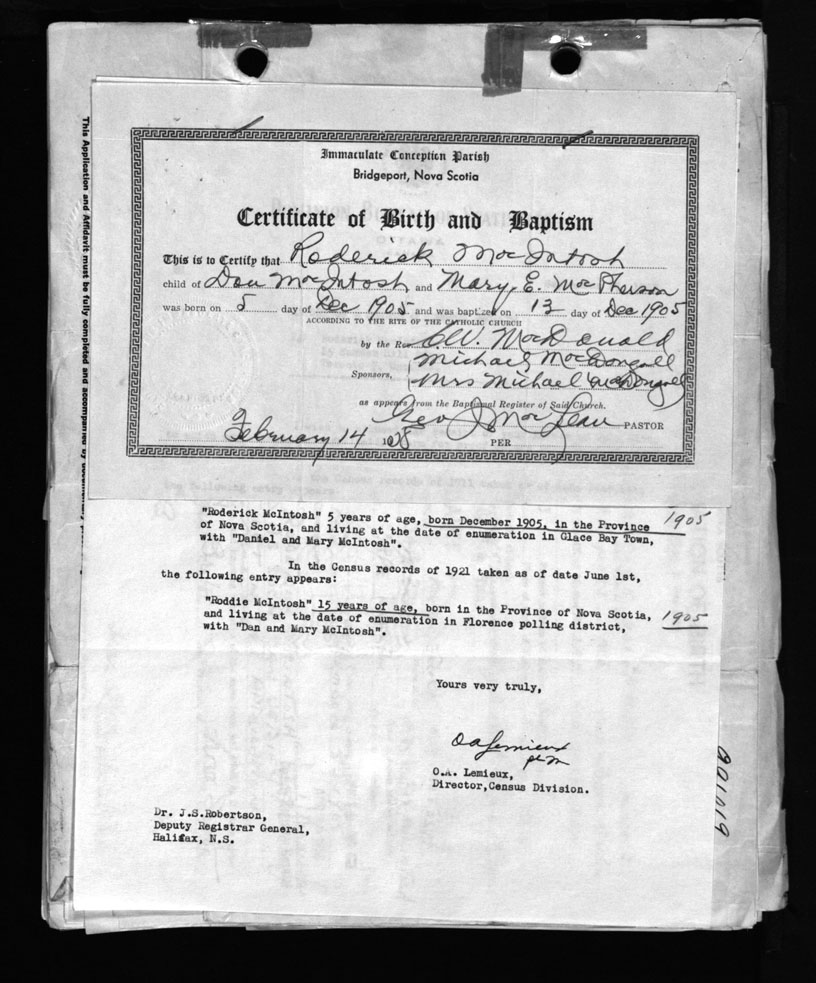 This Application and Affidavit must be fully completed and accompanied by
Immaculate Conception Parish
Bridgeport, Nova Scotia
Certificate of Birth and Baptism
This is to Certify that Roderick MacIntosh
child of Dan MacIntosh and Mary E. MacPherson
was born on 5 day of Dec 1905 and was baptized on 13 day of Dec 1905
ACCORDING TO THE RITE OF THE CATHOLIC CHURCH
by the Rev. C.W. MacDonald
Michael MacDougall
Sponsors, Mrs Michael MacDougall
as appears from the Baptismal Register of Said Church.
Geo J. MacLean PASTOR
February 14 PER
"Roderick McIntosh" 5 years of age, born December 1905, in the Province 1905
of Nova Scotia, and living at the date of enumeration in Glace Bay Town,
with "Daniel and Mary McIntosh".
In the Census records of 1921 taken as of date June 1st,
the following entry appears:
"Roddie McIntosh" 15 years of age, born in the Province of Nova Scotia,
and living at the date of enumeration in Florence polling district, 1905
with "Dan and Mary McIntosh".
Yours very truly,
OALemieux
O.A. Lemieux,
Director,Census Division.
Dr. J.S.Robertson,
Deputy Registrar General,
Halifax, N.S.